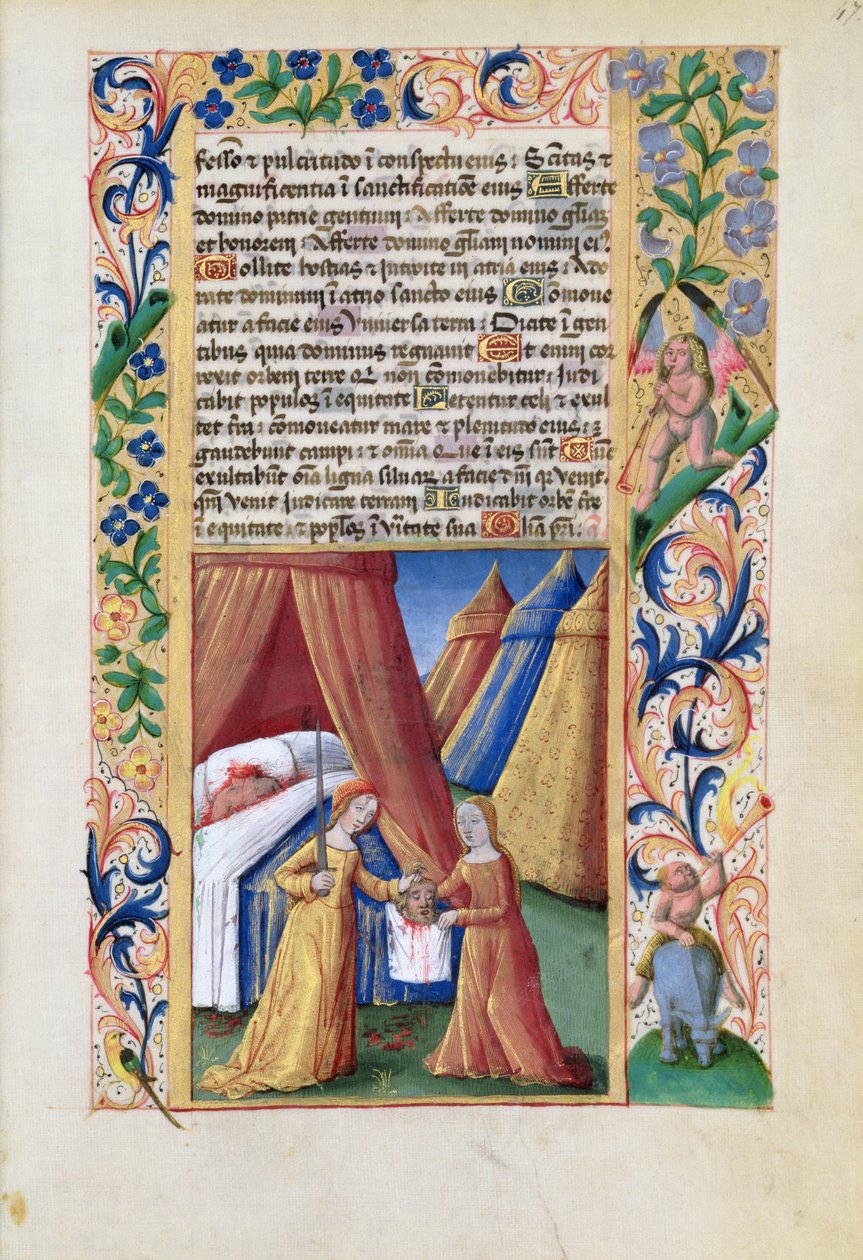 47
fesso ⁊ pulcritudo ī conspectu eius : Scītas ⁊
magnificentia ī sanctificatiōe eius Afferte
domino patrie gentium : Afferte domino gl̄iaꝫ
et honorem : Afferte domino gl̄iam nomini eiꝰ
Tollite hostias ⁊ introite in atria eius : Ado
rate dominum ī atrio sancto eius Cōmoue
atur a facie eius vniuersa terra : Dicite ī gen
tibus quia dominus regnauit Et enim cor
rexit orbem terre q̄ non cōmouebitur : iudi
cabit populos ī equitate Letentur celi ⁊ exul
tet tr̄a : cōmoueatur mare ⁊ plenitudo eius :
gaudebunt campi : ⁊ om̄ia que ī eis sunt Tūc
exultabūt oīa ligna siluaꝝ a facie dn̄i qr venit
qm̄ venit iudicare terram Iudicabit orbē tr̄e
ī equitate ⁊ pop̄los ī v̄itate sua Gl̄ia pr̄i.